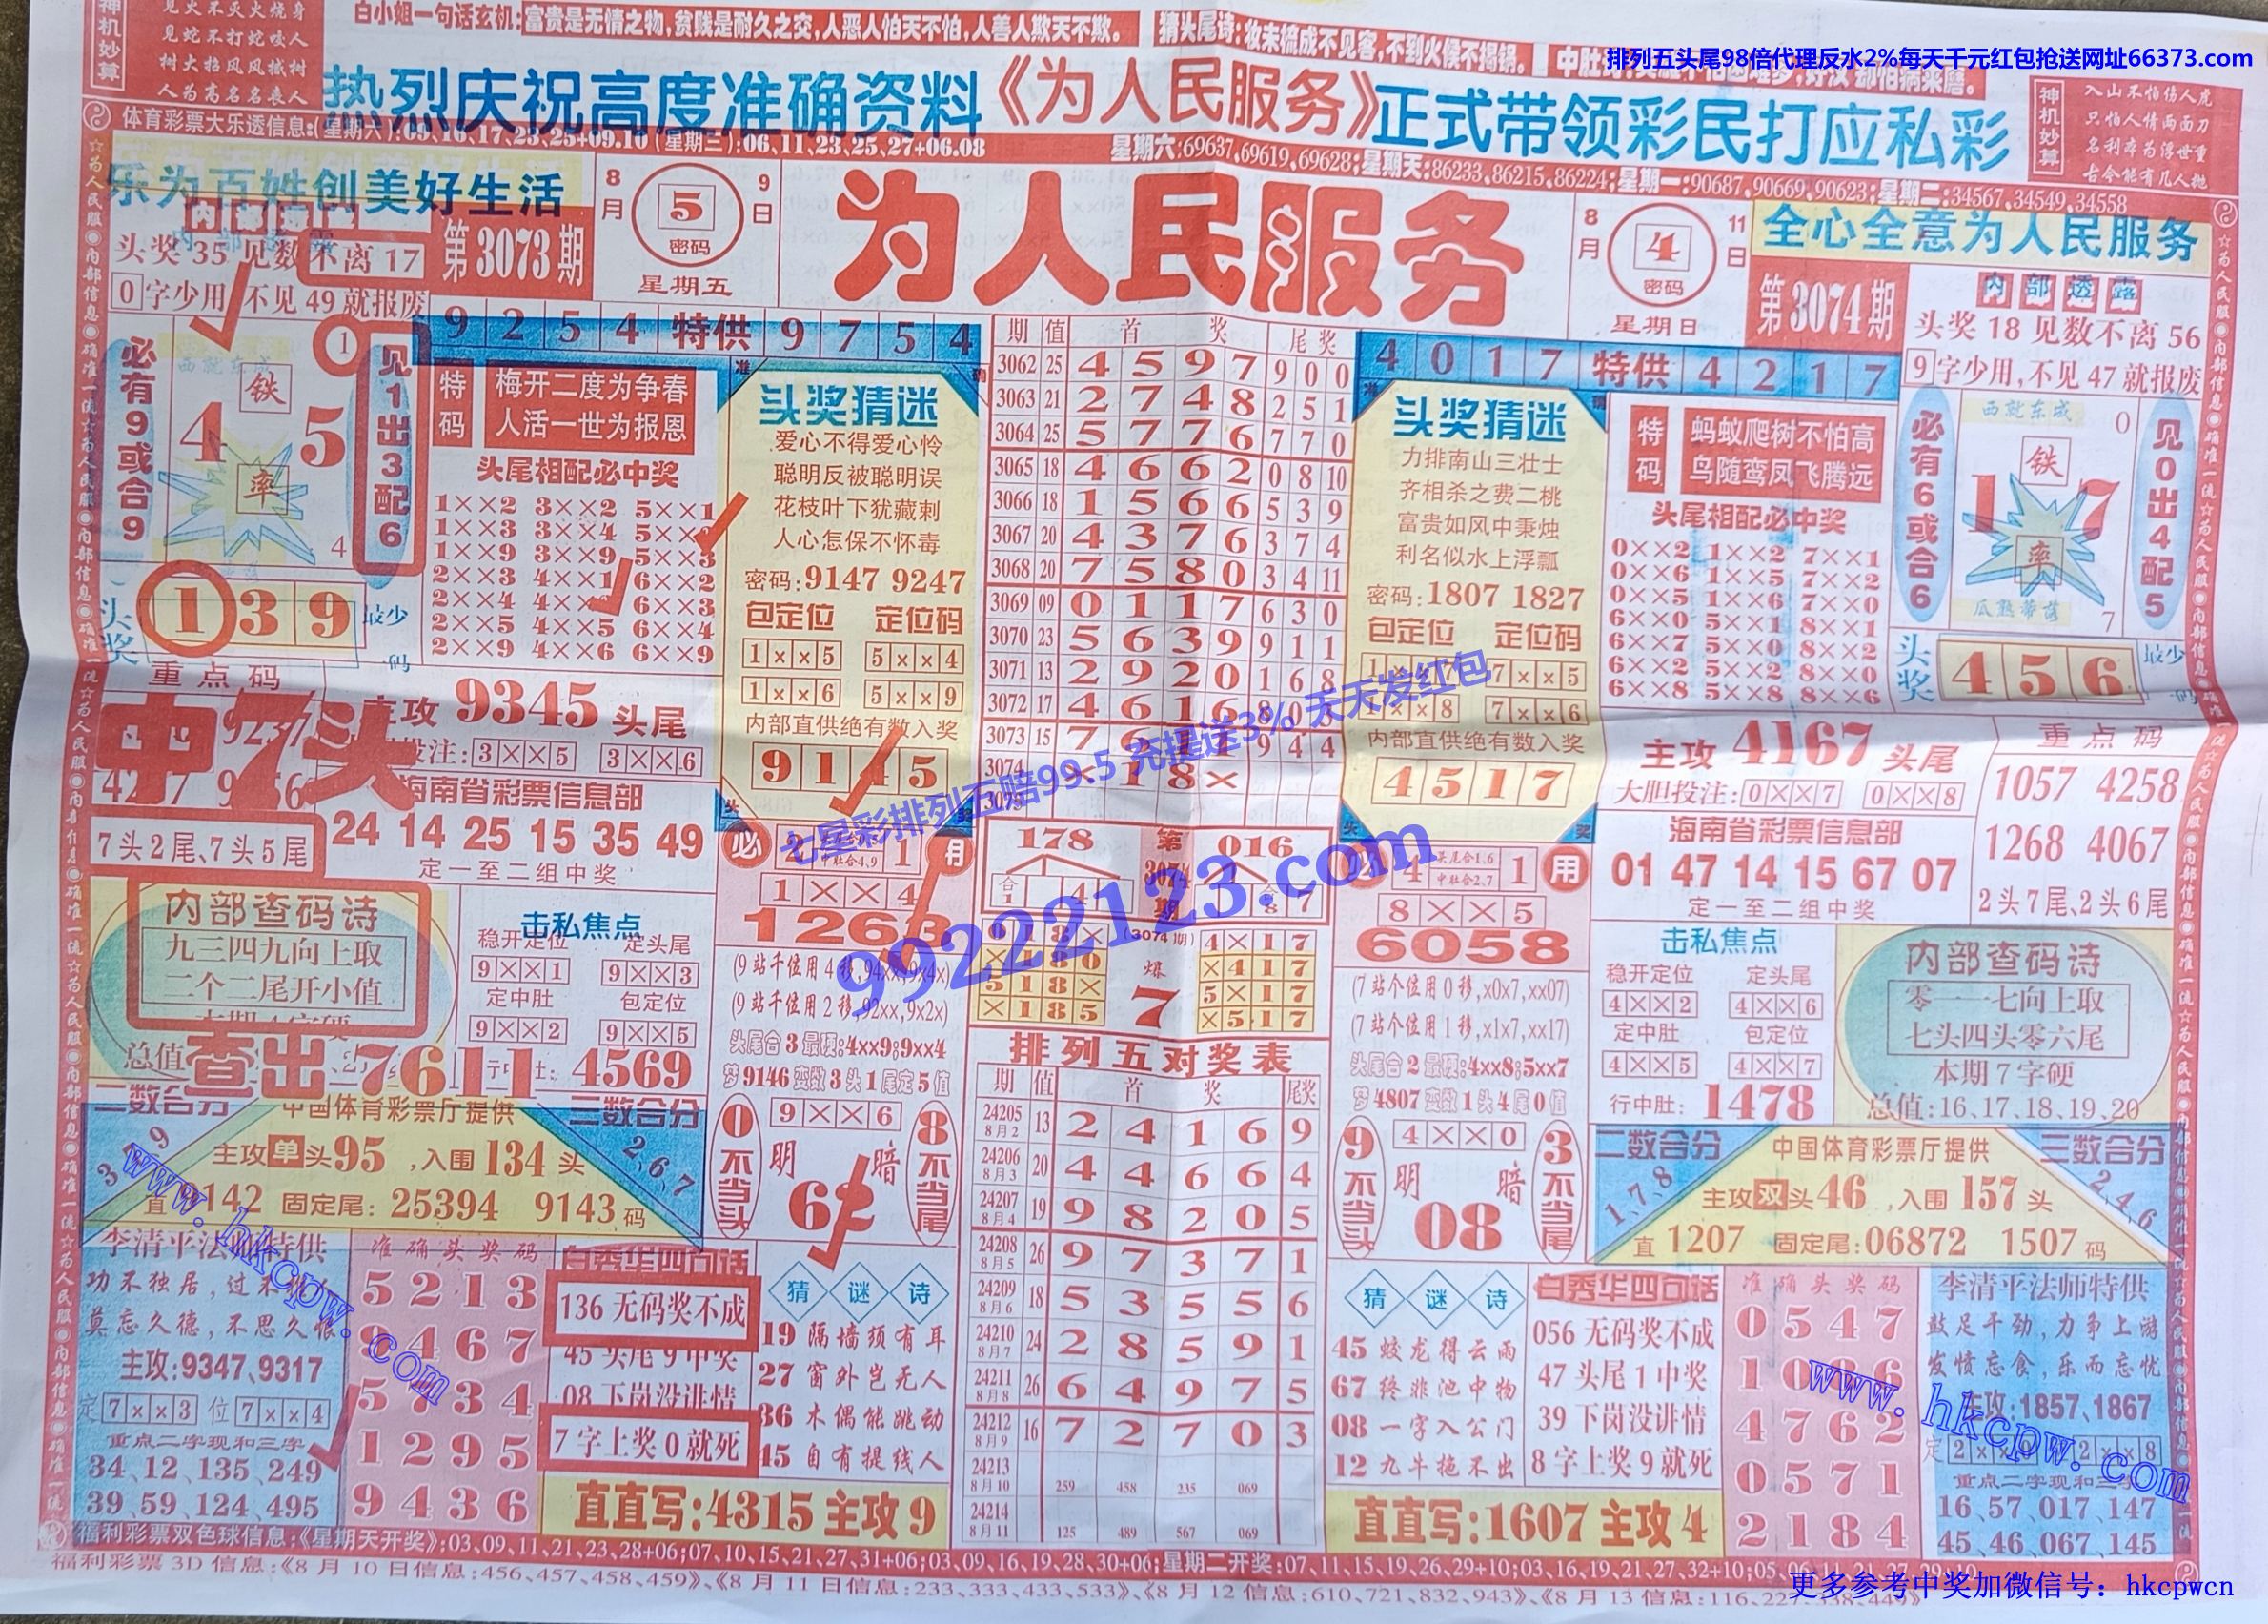 白小姐一句话玄机:富贵是无情之物,贫贱是耐久之交,人恶人怕天不怕,人善人欺天不欺。
猜头尾诗:妆未梳成不见客,不到火候不揭锅。
排列五头尾98倍代理反水2%每天千元红包抢送网址66373.com
神机妙算
见蛇不打蛇咬人
树大招风风撼树
人为高名名丧人
热烈庆祝高度准确资料《为人民服务》正式带领彩民打应私彩
神机妙算
入山不怕伤人虎
只怕人情两面刀
名利本为浮世重
古今能有几人抛
星期六:69637,69619,69628;星期天:86233,86215,86224;星期一:90687,90669,90623;星期二:34567,34549,34558
乐为百姓创美好生活
8月9日
5
密码
星期五
第3073期
为人民服务
8月11日
4
密码
星期日
第3074期
全心全意为人民服务
头奖35见数不离17
0字少用,不见49就报废
内部透露
头奖18见数不离56
9字少用,不见47就报废
9 2 5 4 特供 9 7 5 4
4 0 1 7 特供 4 2 1 7
必有9或合9
铁
4 5
率
见1出3配6
头奖 1 3 9 最少一码
特码
梅开二度为争春
人活一世为报恩
头尾相配必中奖
头奖猜迷
爱心不得爱心怜
聪明反被聪明误
花枝叶下犹藏刺
人心怎保不怀毒
密码:9147 9247
包定位 定位码
1××5 5××4
1××6 5××9
内部直供绝有数入奖
9 1 4 5
期 值 首 奖 尾奖
3062 25 4 5 9 7 9 0 0
3063 21 2 7 4 8 2 5 1
3064 25 5 7 7 6 7 7 0
3065 18 4 6 6 2 0 8 10
3066 18 1 5 6 6 5 3 9
3067 20 4 3 7 6 3 7 4
3068 20 7 5 8 0 3 4 11
3069 09 0 1 1 7 6 3 0
3070 23 5 6 3 9 9 1 1
3071 13 2 9 2 0 1 6 8
3072 17 4 6 1 6
3073 15 7 6 1 1 9 4 4
3074 × 1 8 ×
头奖猜迷
力排南山三壮士
齐相杀之费二桃
富贵如风中秉烛
利名似水上浮瓢
密码:1807 1827
包定位 定位码
7××5
7××6
内部直供绝有数入奖
4 5 1 7
特码
蚂蚁爬树不怕高
鸟随鸾凤飞腾远
头尾相配必中奖
0××2 1××2 7××1
0××6 1××5 7××2
0××5 1××6 7××0
6××0 5××1 8××1
6××7 5××0 8××2
6××2 5××2 8××0
6××8 5××8 8××6
必有6或合6
西就东成
铁
1 7
率
瓜熟蒂落
见0出4配5
头奖 4 5 6 最少一码
重点码
中7头
主攻 9345 头尾
3××5 3××6
7头2尾、7头5尾
海南省彩票信息部
24 14 25 15 35 49
定一至二组中奖
主攻 4167 头尾
大胆投注:0××7 0××8
海南省彩票信息部
01 47 14 15 67 07
定一至二组中奖
重点码
1057 4258
1268 4067
2头7尾、2头6尾
七星彩排列五赔99.5 充提送3% 天天发红包
99222123.com
内部查码诗
九三四九向上取
二个二尾开小值
查出7611
击私焦点
稳开定位 定头尾
9××1 9××3
定中肚 包定位
9××2 9××5
4569
1××4
1263
头尾合3最硬:4xx9;9xx4
梦9146变数3头1尾定5值
0不当头
9××6
明 暗
8不当尾
178
016
爆
7
8××5
6058
(7站个位用0移,x0x7,xx07)
(7站个位用1移,x1x7,xx17)
头尾合2最硬:4xx8;5xx7
梦4807变数1头4尾0值
9不当头
4××0
明 暗
08
3不当尾
击私焦点
稳开定位 定头尾
4××2 4××6
定中肚 包定位
4××5 4××7
行中肚: 1478
内部查码诗
零一一七向上取
七头四头零六尾
本期7字硬
总值:16、17、18、19、20
二数合分
中国体育彩票厅提供
三数合分
2、6、7
主攻单头95,入围134头
固定尾:25394 9143码
排列五对奖表
期 值 首 奖 尾奖
24205 8月2 13 2 4 1 6 9
24206 8月3 20 4 4 6 6 4
24207 8月4 19 9 8 2 0 5
24208 8月5 26 9 7 3 7 1
24209 8月6 18 5 3 5 5 6
24210 8月7 24 2 8 5 9 1
24211 8月8 26 6 4 9 7 5
24212 8月9 16 7 2 7 0 3
24213 8月10 259 458 235 069
24214 8月11 125 489 567 069
二数合分
1、7、8
中国体育彩票厅提供
三数合分
2、4、6
主攻双头46,入围157头
直1207 固定尾:06872 1507码
李清平法师特供
莫忘久德,不思久恨
主攻:9347、9317
定7××3 位7××4
重点二字现和三字
34、12、135、249
39、59、124、495
准确头奖码
5 2 1 3
9 4 6 7
5 7 3 4
1 2 9 5
9 4 3 6
白秀华四句话
136无码奖不成
45头尾9中奖
08下岗没讲情
7字上奖0就死
猜谜诗
19 隔墙须有耳
27 窗外岂无人
36 木偶能跳动
45 自有提线人
直直写:4315主攻9
猜谜诗
45 蛟龙得云雨
67 终非池中物
08 一字入公门
12 九牛拖不出
白秀华四句话
056无码奖不成
47头尾1中奖
39下岗没讲情
8字上奖9就死
直直写:1607主攻4
准确头奖码
0 5 4 7
1 0 8 6
4 7 6 2
0 5 7 1
2 1 8 4
李清平法师特供
鼓足干劲,力争上游
发愤忘食,乐而忘忧
主攻:1857、1867
重点二字现和三字
16、57、017、147
45、46、067、145
www.hkcpw.com
www.hkcpw.com
福利彩票双色球信息:《星期天开奖》:03,09,11,21,23,28+06;07,10,15,21,27,31+06;03,09,16,19,28,30+06;星期二开奖:07,11,15,19,26,29+10;03,16,19,21,27,32+10;
福利彩票3D信息:《8月10日信息:456、457、458、459》、《8月11日信息:233、333、433、533》、《8月12信息:610、721、832、943》、《8月13信息:116、227、338、449》
更多参考中奖加微信号：hkcpwcn